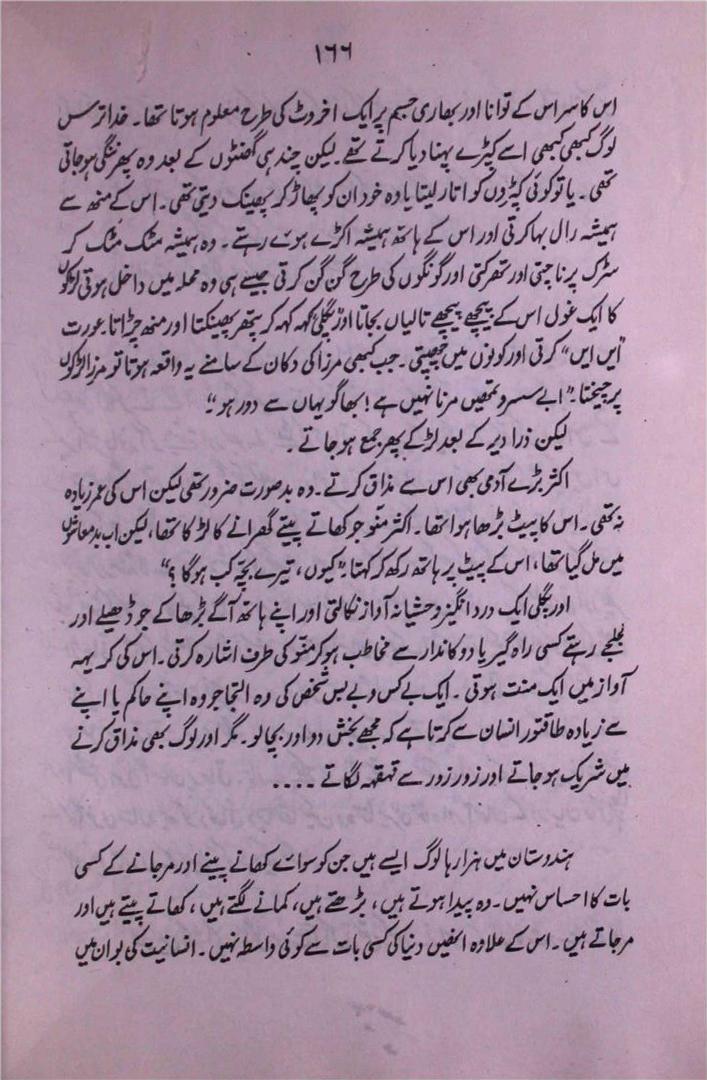 ۱۶۶
اس کا سر اس کے توانا اور بھاری جسم پر ایک اخروٹ کی طرح معلوم ہوتا تھا۔ خدا ترس
لوگ کبھی کبھی اسے کپڑے پہنا دیا کرتے تھے لیکن چند ہی گھنٹوں کے بعد وہ پھر ننگی ہو جاتی
تھی۔ یا تو کوئی کپڑوں کو اتار لیتا یا وہ خود ان کو پھاڑ کر پھینک دیتی تھی۔ اس کے منھ سے
ہمیشہ رال بہا کرتی اور اس کے ہاتھ ہمیشہ اکڑے ہوے رہتے۔ وہ ہمیشہ مٹک مٹک کر
سڑک پر ناچتی اور تھرکتی اور گونگوں کی طرح گن گن کرتی جیسے ہی وہ محلہ میں داخل ہوتی لڑکوں
کا ایک غول اس کے پیچھے پیچھے تالیاں بجاتا اور پگلی کہہ کہہ کر پتھر پھینکتا اور منھ چڑاتا۔ عورت
"ایں ایں" کرتی اور کونوں میں چھپتی۔ جب کبھی مرزا کی دکان کے سامنے یہ واقعہ ہوتا تو مرزا لڑکوں
پر چیختا۔ "ابے سسرو تمھیں مرنا نہیں ہے! بھاگو یہاں سے دور ہو"۔
لیکن ذرا دیر کے بعد لڑکے پھر جمع ہو جاتے۔
اکثر بڑے آدمی بھی اس سے مذاق کرتے۔ وہ بدصورت ضرور تھی لیکن اس کی عمر زیادہ
نہ تھی۔ اس کا پیٹ بڑھا ہوا تھا۔ اکثر منّو جو کھاتے پیتے گھرانے کا لڑکا تھا، لیکن اب بدمعاشوں
میں مل گیا تھا، اس کے پیٹ پر ہاتھ رکھ کر کہتا۔ "کیوں، تیرے بچّہ کب ہو گا؟"
اور پگلی ایک درد انگیز وحشیانہ آواز نکالتی اور اپنے ہاتھ آگے بڑھا کے جو ڈھیلے اور
لجلجے رہتے کسی راہ گیر یا دوکاندار سے مخاطب ہو کر منّو کی طرف اشارہ کرتی۔ اس کی کریہہ
آواز میں ایک منت ہوتی۔ ایک بے کس و بے بس شخص کی وہ التجا جو وہ اپنے حاکم یا اپنے
سے زیادہ طاقتور انسان سے کرتا ہے کہ مجھے بخش دو اور بچا لو۔ مگر اور لوگ بھی مذاق کرنے
میں شریک ہو جاتے اور زور زور سے قہقہہ لگاتے ....
ہندوستان میں ہزارہا لوگ ایسے ہیں جن کو سواے کھانے پینے اور مر جانے کے کسی
بات کا احساس نہیں۔ وہ پیدا ہوتے ہیں، بڑھتے ہیں، کمانے لگتے ہیں، کھاتے پیتے ہیں اور
مر جاتے ہیں۔ اس کے علاوہ انھیں دنیا کی کسی بات سے کوئی واسطہ نہیں۔ انسانیت کی بو ان میں